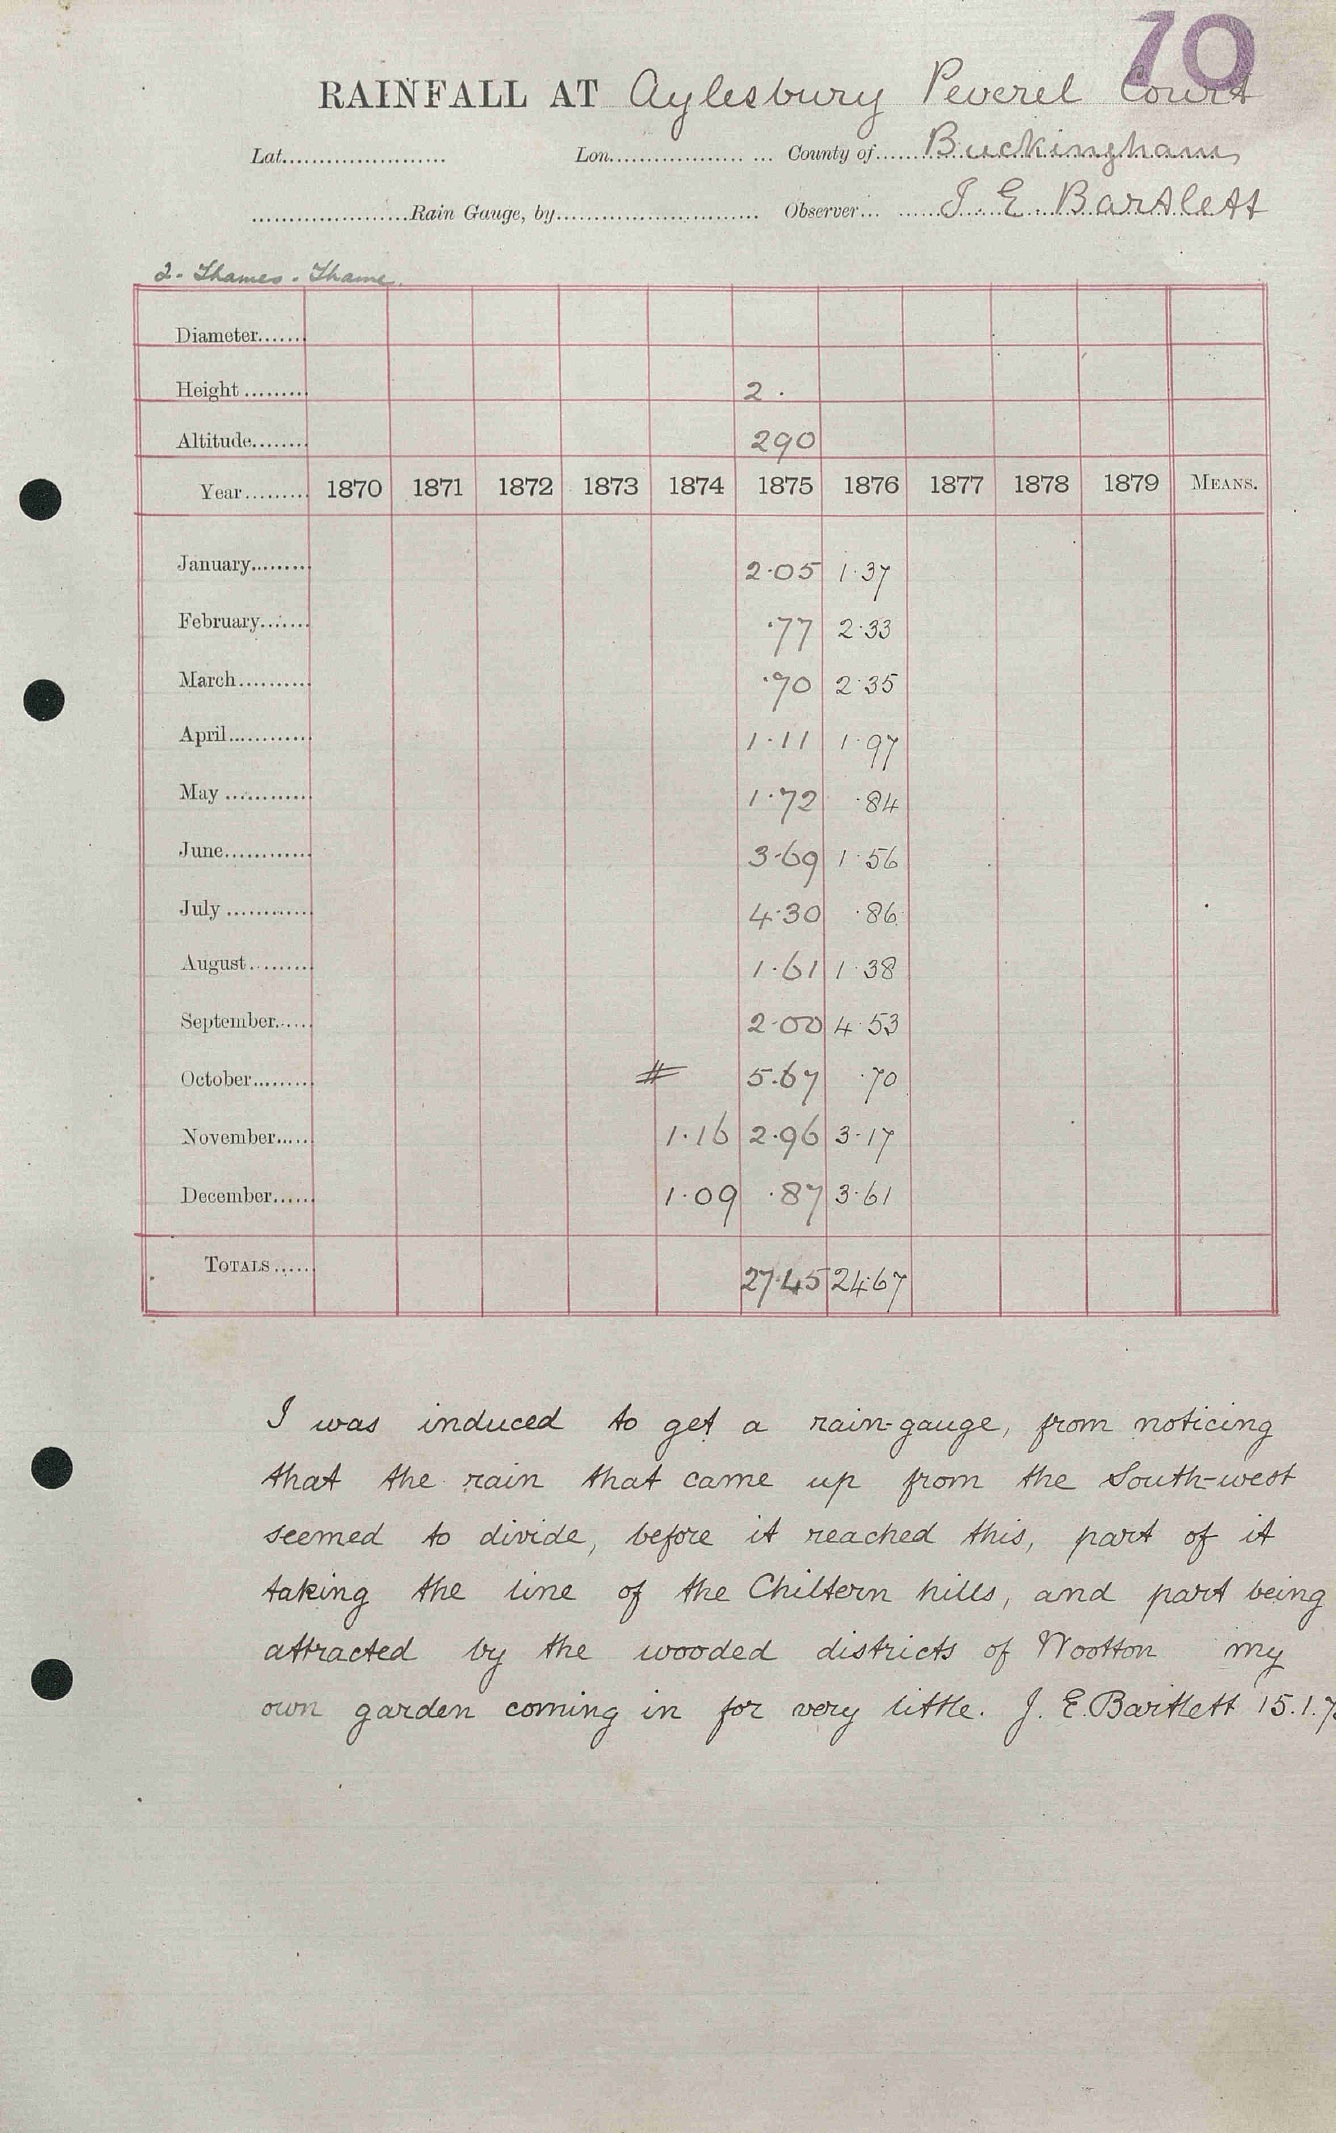 70
RAINFALL AT Aylesbury Peverel Court
Lat...................... Lon..................... County of......Buckingham
......................Rain Gauge, by............................ Observer... ......J. E. Bartlett
2 - Thames - Thame.
Diameter.......
Height ......... 2 .
Altitude........ 290
Year......... 1870 1871 1872 1873 1874 1875 1876 1877 1878 1879 MEANS.
January......... 2·05 1·37
February........ ·77 2·33
March.......... ·70 2·35
April............ 1·11 1·97
May ............ 1·72 ·84
June............ 3·69 1·56
July ............ 4·30 ·86
August......... 1·61 1·38
September...... 2·00 4·53
October......... # 5·67 ·70
November...... 1·16 2·96 3·17
December...... 1·09 ·87 3·61
TOTALS ...... 27·45 24·67
I was induced to get a rain-gauge, from noticing
that the rain that came up from the South-west
seemed to divide, before it reached this, part of it
taking the line of the Chiltern hills, and part being
attracted by the wooded districts of Wootton my
own garden coming in for very little. J. E. Bartlett 15.1.7